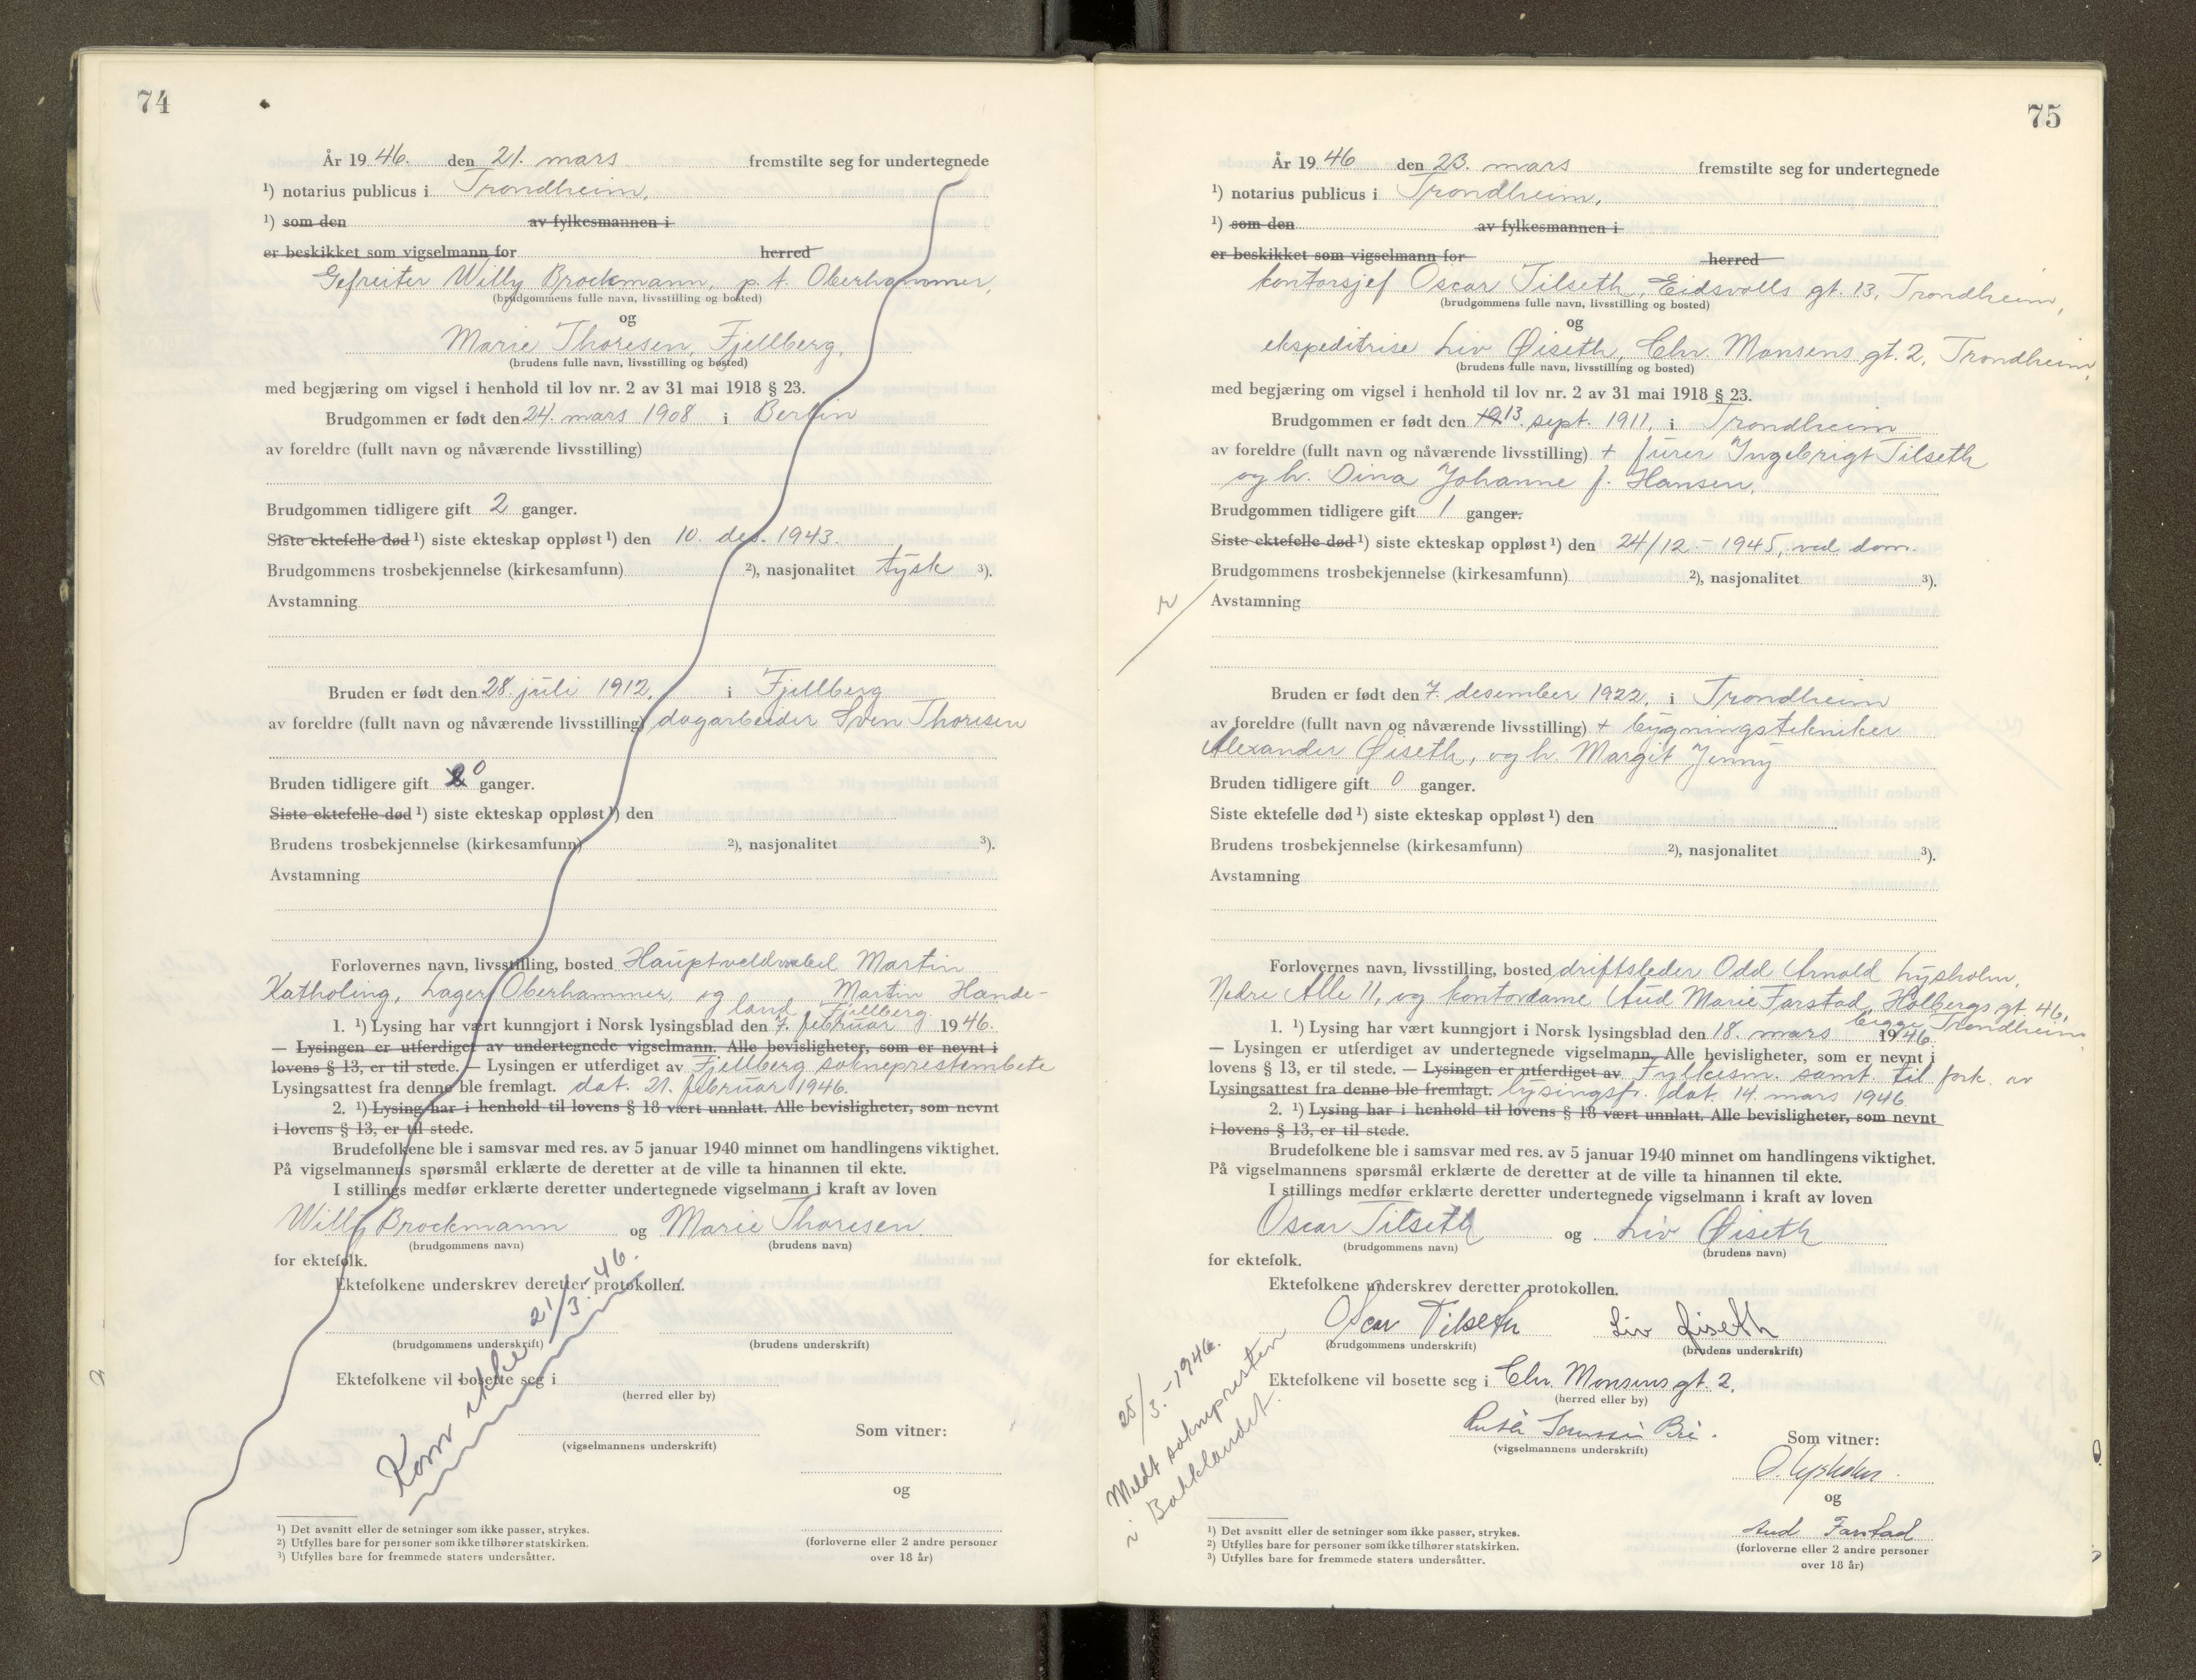 74
År 19 46. den 21. mars fremstilte seg for undertegnede
¹) notarius publicus i Trondheim,
¹) som den av fylkesmannen i
er beskikket som vigselmann for herred
Gefreiter Willy Brockmann, p.t. Oberhammer,
(brudgommens fulle navn, livsstilling og bosted)
og
Marie Thoresen, Fjellberg,
(brudens fulle navn, livsstilling og bosted)
med begjæring om vigsel i henhold til lov nr. 2 av 31 mai 1918 § 23.
Brudgommen er født den 24. mars 1908 i Berlin
av foreldre (fullt navn og nåværende livsstilling)
Brudgommen tidligere gift 2 ganger.
Siste ektefelle død ¹) siste ekteskap oppløst ¹) den 10. des. 1943.
Brudgommens trosbekjennelse (kirkesamfunn) ²), nasjonalitet tysk ³).
Avstamning
Bruden er født den 28. juli 1912, i Fjellberg
av foreldre (fullt navn og nåværende livsstilling) dagarbeider Sven Thoresen
Bruden tidligere gift 0 ganger.
Siste ektefelle død ¹) siste ekteskap oppløst ¹) den
Brudens trosbekjennelse (kirkesamfunn) ²), nasjonalitet ³).
Avstamning
Forlovernes navn, livsstilling, bosted Martin
Katholing, Lager Oberhammer, og Martin Hande-
land, Fjellberg.
1. ¹) Lysing har vært kunngjort i Norsk lysingsblad den 7. februar 19 46.
— Lysingen er utferdiget av undertegnede vigselmann. Alle bevisligheter, som er nevnt i
lovens § 13, er til stede. — Lysingen er utferdiget av Fjellberg sokneprestembete
Lysingsattest fra denne ble fremlagt. dat. 21. februar 1946.
2. ¹) Lysing har i henhold til lovens § 18 vært unnlatt. Alle bevisligheter, som nevnt
i lovens § 13, er til stede.
Brudefolkene ble i samsvar med res. av 5 januar 1940 minnet om handlingens viktighet.
På vigselmannens spørsmål erklærte de deretter at de ville ta hinannen til ekte.
I stillings medfør erklærte deretter undertegnede vigselmann i kraft av loven
Willy Brockmann og Marie Thoresen.
(brudgommens navn) (brudens navn)
for ektefolk.
Ektefolkene underskrev deretter protokollen.
(brudgommens underskrift) (brudens underskrift)
Kom ikke 21/3. 46.
Ektefolkene vil bosette seg i
(herred eller by)
Som vitner:
(vigselmannens underskrift)
og
¹) Det avsnitt eller de setninger som ikke passer, strykes.
²) Utfylles bare for personer som ikke tilhører statskirken.
³) Utfylles bare for fremmede staters undersåtter.
(forloverne eller 2 andre personer
over 18 år)
75
År 19 46 den 23. mars fremstilte seg for undertegnede
¹) notarius publicus i Trondheim,
¹) som den av fylkesmannen i
er beskikket som vigselmann for herred
kontorsjef Oscar Tilseth, Eidsvolls gt. 13, Trondheim,
(brudgommens fulle navn, livsstilling og bosted)
og
ekspeditrise Liv Øiseth, Chr. Monsens gt. 2, Trondheim,
(brudens fulle navn, livsstilling og bosted)
med begjæring om vigsel i henhold til lov nr. 2 av 31 mai 1918 § 23.
Brudgommen er født den 13. sept. 1911, i Trondheim
av foreldre (fullt navn og nåværende livsstilling) + fürer Ingebrigt Tilseth
og h. Dina Johanne f. Hansen.
Brudgommen tidligere gift 1 ganger.
Siste ektefelle død ¹) siste ekteskap oppløst ¹) den 24/12.-1945, ved dom.
Brudgommens trosbekjennelse (kirkesamfunn) ²), nasjonalitet ³).
Avstamning
Bruden er født den 7. desember 1922, i Trondheim
av foreldre (fullt navn og nåværende livsstilling) + bygningstekniker
Alexander Øiseth, og h. Margit Jenny
Bruden tidligere gift 0 ganger.
Siste ektefelle død ¹) siste ekteskap oppløst ¹) den
Brudens trosbekjennelse (kirkesamfunn) ²), nasjonalitet ³).
Avstamning
Forlovernes navn, livsstilling, bosted driftsleder Odd Arnold Lysholm,
Nedre Alle 11, og kontordame Aud Marie Farstad, Holbergs gt. 46,
begge Trondheim.
1. ¹) Lysing har vært kunngjort i Norsk lysingsblad den 18. mars 19 46
— Lysingen er utferdiget av undertegnede vigselmann. Alle bevisligheter, som er nevnt i
lovens § 13, er til stede. — Lysingen er utferdiget av Fylkesm. samt. til fork. av
Lysingsattest fra denne ble fremlagt. lysingsfr. dat. 14. mars 1946.
2. ¹) Lysing har i henhold til lovens § 18 vært unnlatt. Alle bevisligheter, som nevnt
i lovens § 13, er til stede.
Brudefolkene ble i samsvar med res. av 5 januar 1940 minnet om handlingens viktighet.
På vigselmannens spørsmål erklærte de deretter at de ville ta hinannen til ekte.
I stillings medfør erklærte deretter undertegnede vigselmann i kraft av loven
Oscar Tilseth og Liv Øiseth
(brudgommens navn) (brudens navn)
for ektefolk.
Ektefolkene underskrev deretter protokollen.
Oscar Tilseth Liv Øiseth
(brudgommens underskrift) (brudens underskrift)
Ektefolkene vil bosette seg i Chr. Monsens gt. 2.
(herred eller by)
(vigselmannens underskrift)
Som vitner:
O. Lysholm.
og
Aud Farstad
(forloverne eller 2 andre personer
over 18 år)
25/3.-1946.
Meldt soknepresten
i Bakklandet.
¹) Det avsnitt eller de setninger som ikke passer, strykes.
²) Utfylles bare for personer som ikke tilhører statskirken.
³) Utfylles bare for fremmede staters undersåtter.